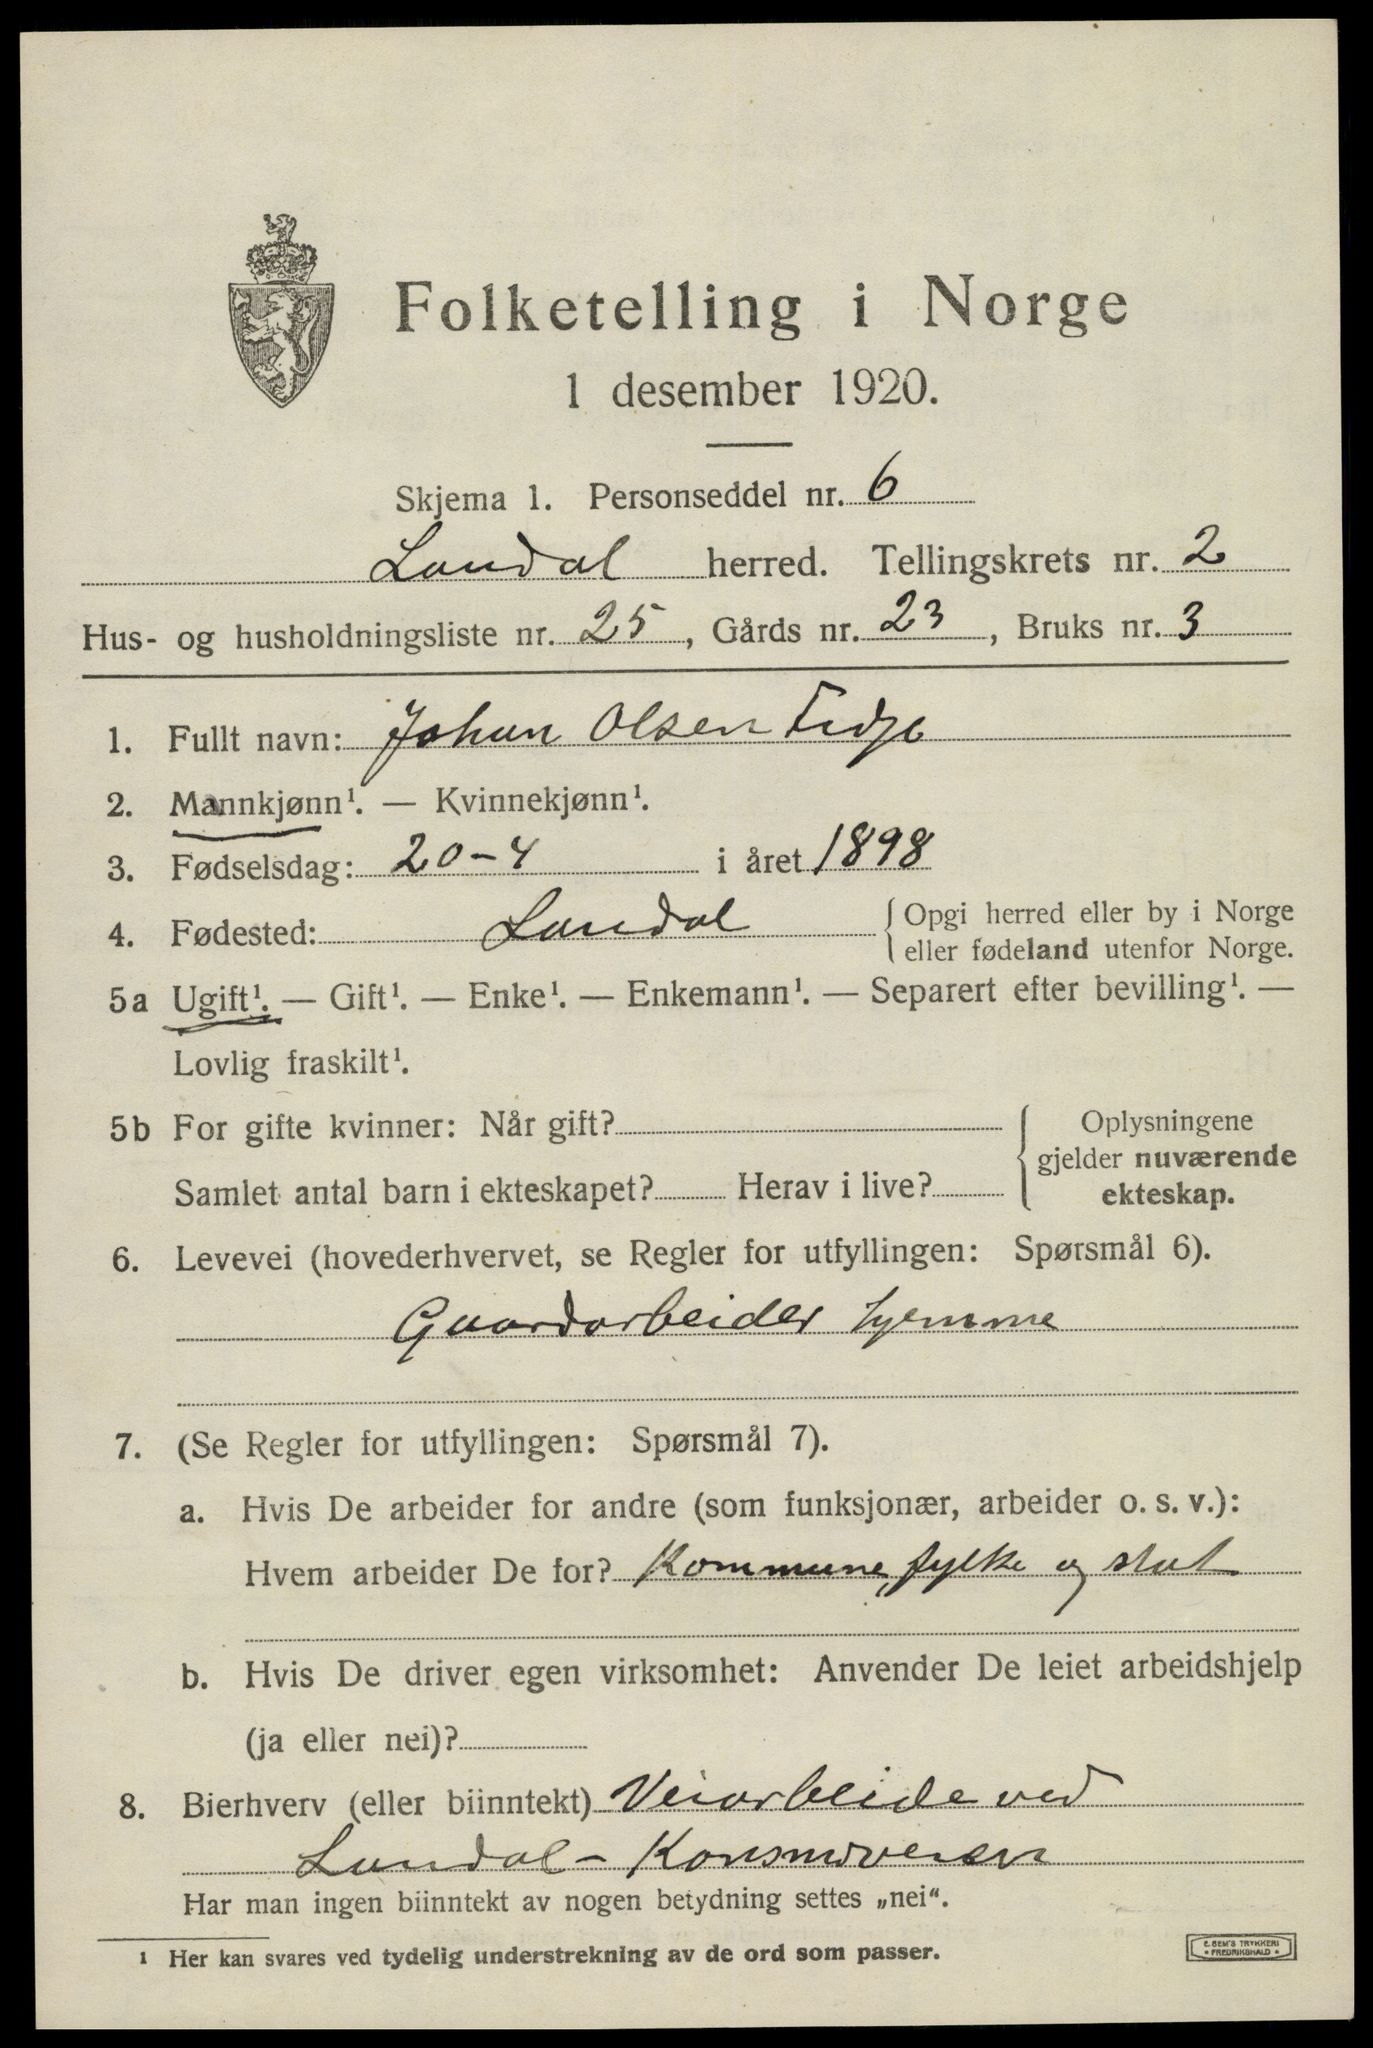 Folketelling i Norge
1 desember 1920.
Skjema 1. Personseddel nr. 6
Laudal herred. Tellingskrets nr. 2
Hus- og husholdningsliste nr. 25, Gårds nr. 23, Bruks nr. 3
1. Fullt navn: Johan Olsen Fidje
2. Mannkjønn¹. — Kvinnekjønn¹.
3. Fødselsdag: 20-4 i året 1898
4. Fødested: Laudal { Opgi herred eller by i Norge
eller fødeland utenfor Norge.
5a Ugift¹. — Gift¹. — Enke¹. — Enkemann¹. — Separert efter bevilling¹. —
Lovlig fraskilt¹.
5b For gifte kvinner: Når gift? { Oplysningene
gjelder nuværende
Samlet antal barn i ekteskapet? Herav i live? ekteskap.
6. Levevei (hovederhvervet, se Regler for utfyllingen: Spørsmål 6).
Gaardarbeider hjemme
7. (Se Regler for utfyllingen: Spørsmål 7).
a. Hvis De arbeider for andre (som funksjonær, arbeider o. s. v.):
Hvem arbeider De for? Kommune, fylke og stat
b. Hvis De driver egen virksomhet: Anvender De leiet arbeidshjelp
(ja eller nei)?
8. Bierhverv (eller biinntekt) Veiarbeide ved
Laudal - Konsmoveien
Har man ingen biinntekt av nogen betydning settes „nei“.
¹ Her kan svares ved tydelig understrekning av de ord som passer.
E. SEM'S TRYKKERI
• FREDRIKSHALD •